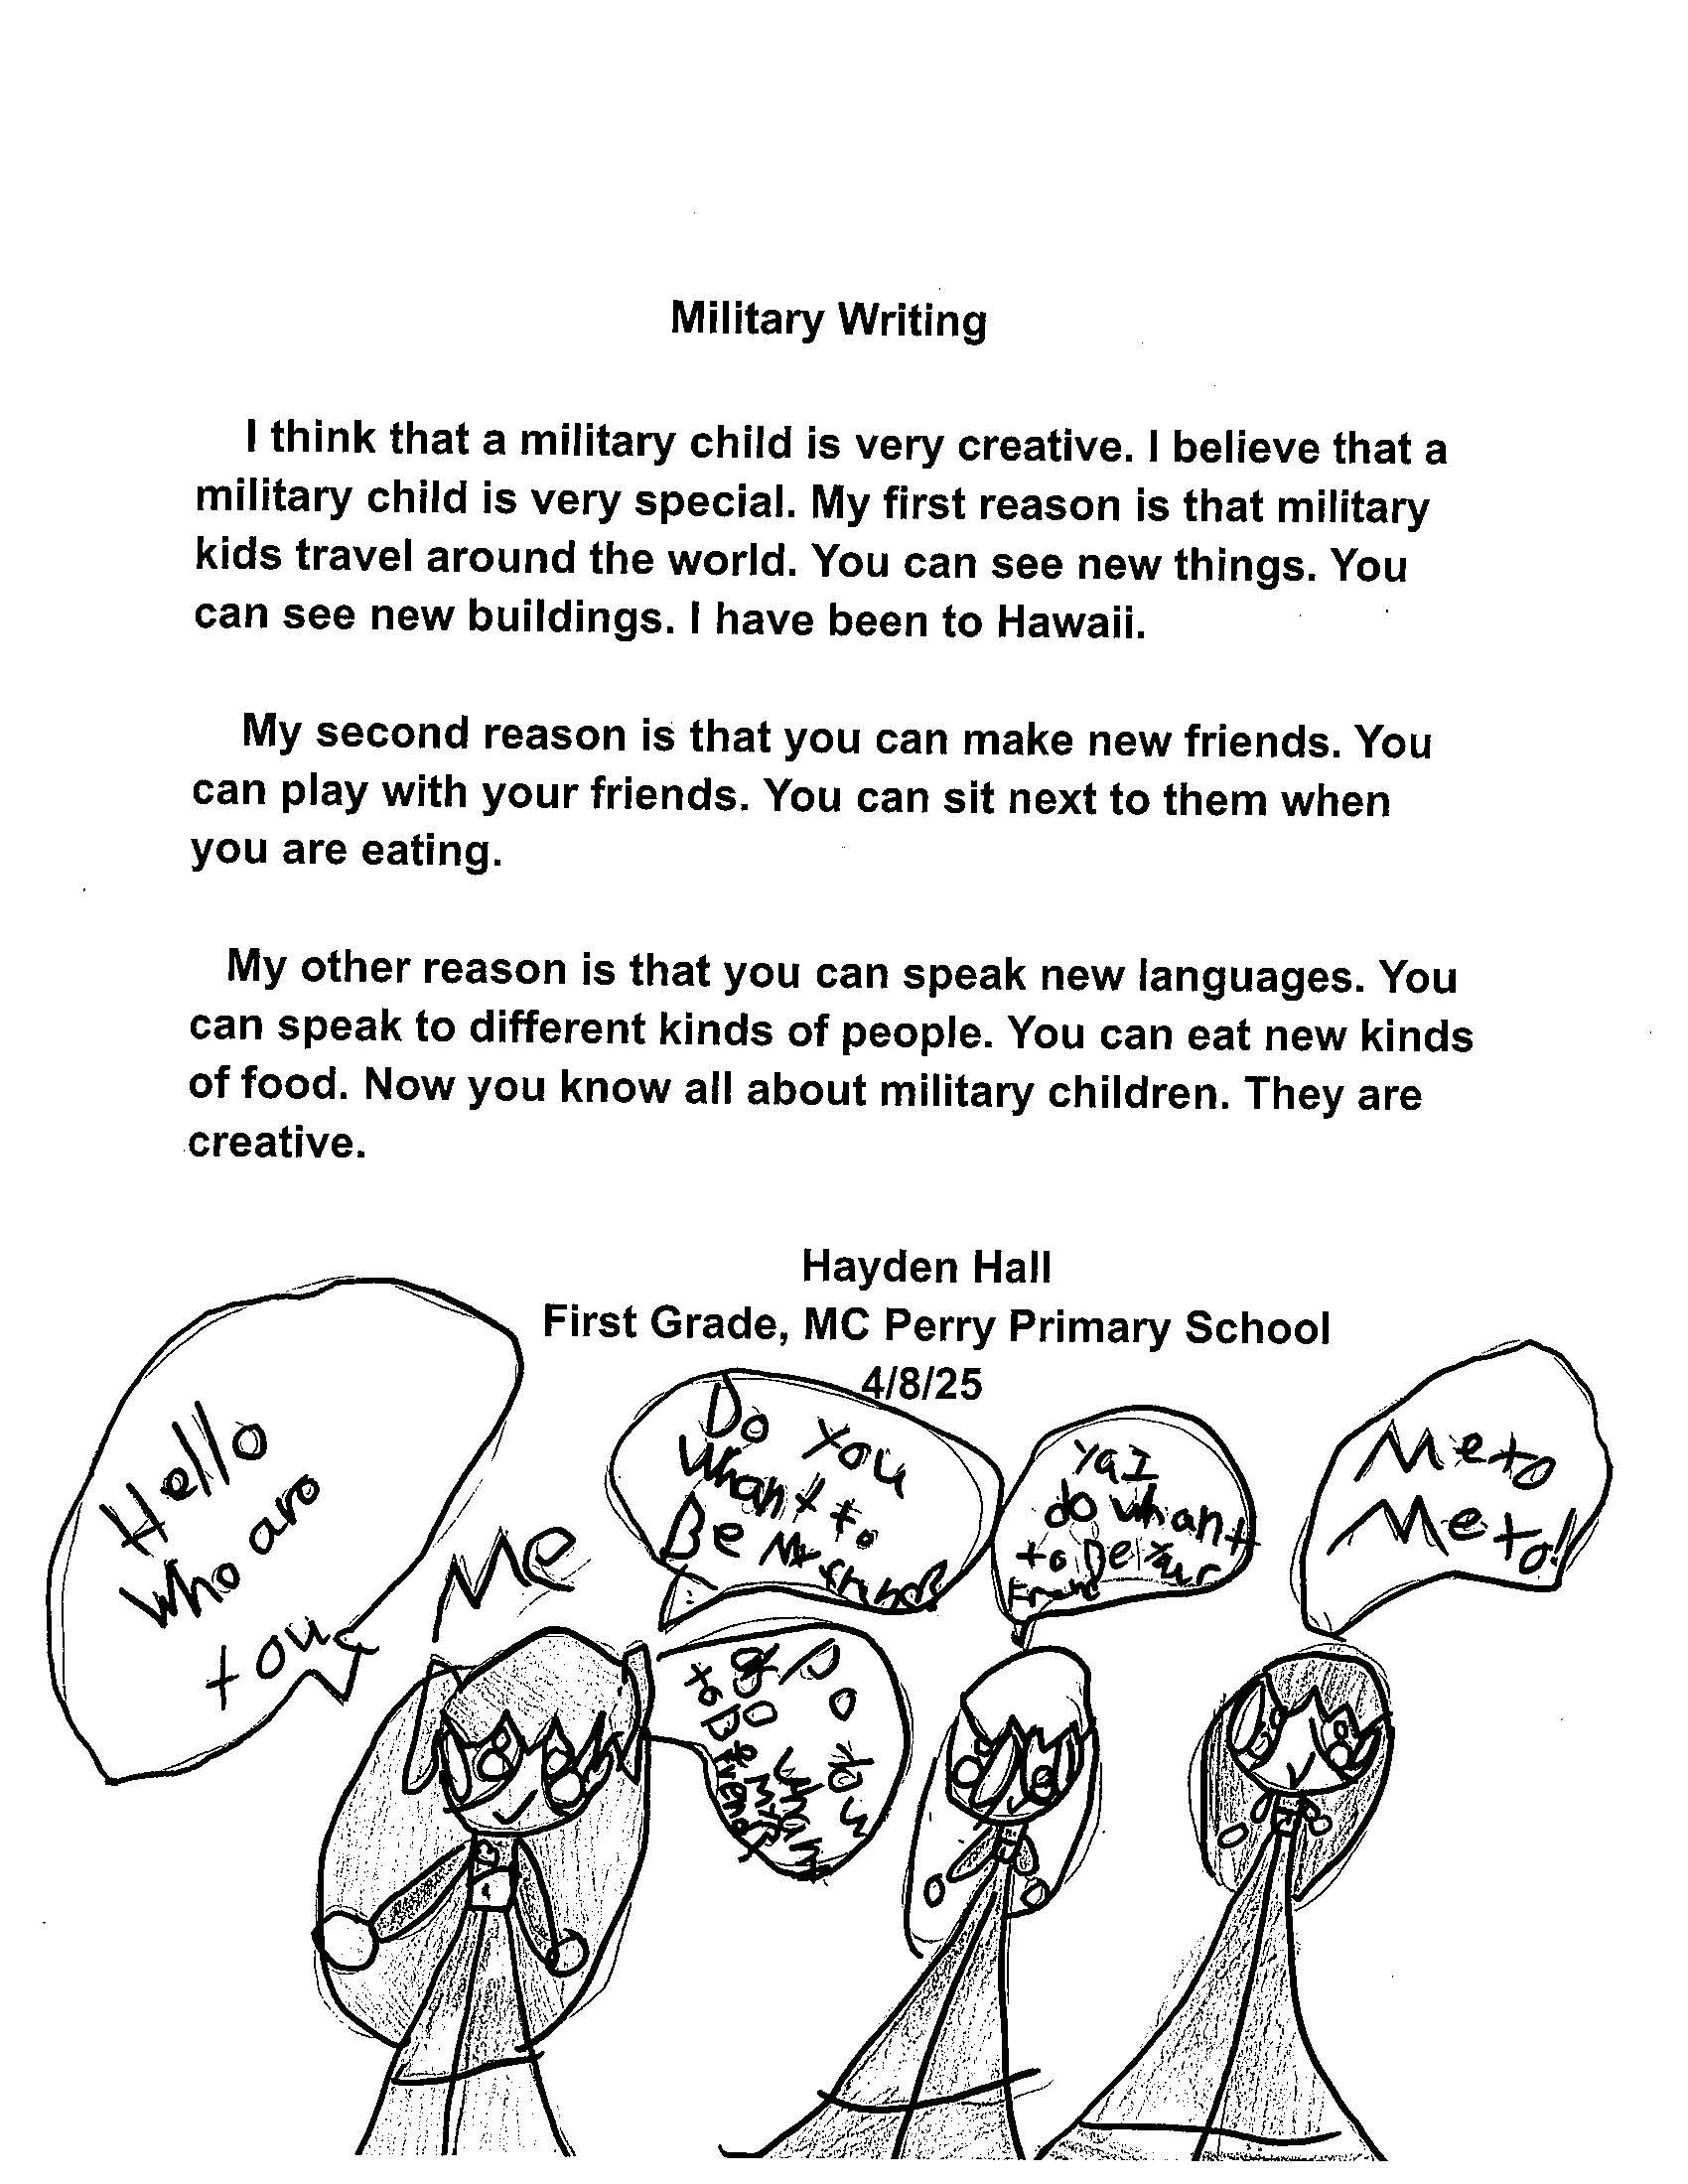 Military Writing
I think that a military child is very creative. I believe that a
military child is very special. My first reason is that military
kids travel around the world. You can see new things. You
can see new buildings. I have been to Hawaii.
My second reason is that you can make new friends. You
can play with your friends. You can sit next to them when
you are eating.
My other reason is that you can speak new languages. You
can speak to different kinds of people. You can eat new kinds
of food. Now you know all about military children. They are
creative.
Hayden Hall
First Grade, MC Perry Primary School
4/8/25
Hello
who are
you
Me
Do you
whant to
Be My
Ya I
do whant
to be your
Me to
Me to!
Do you
whant
to be